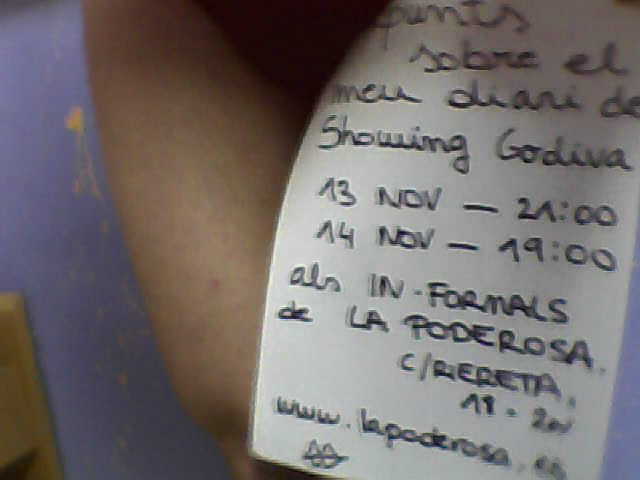 sobre el
meu diari de
Showing Godiva
13 NOV — 21:00
14 NOV — 19:00
als IN-FORMALS
de LA PODEROSA.
C/RIERETA,
18 - 20n
www.lapoderosa.es